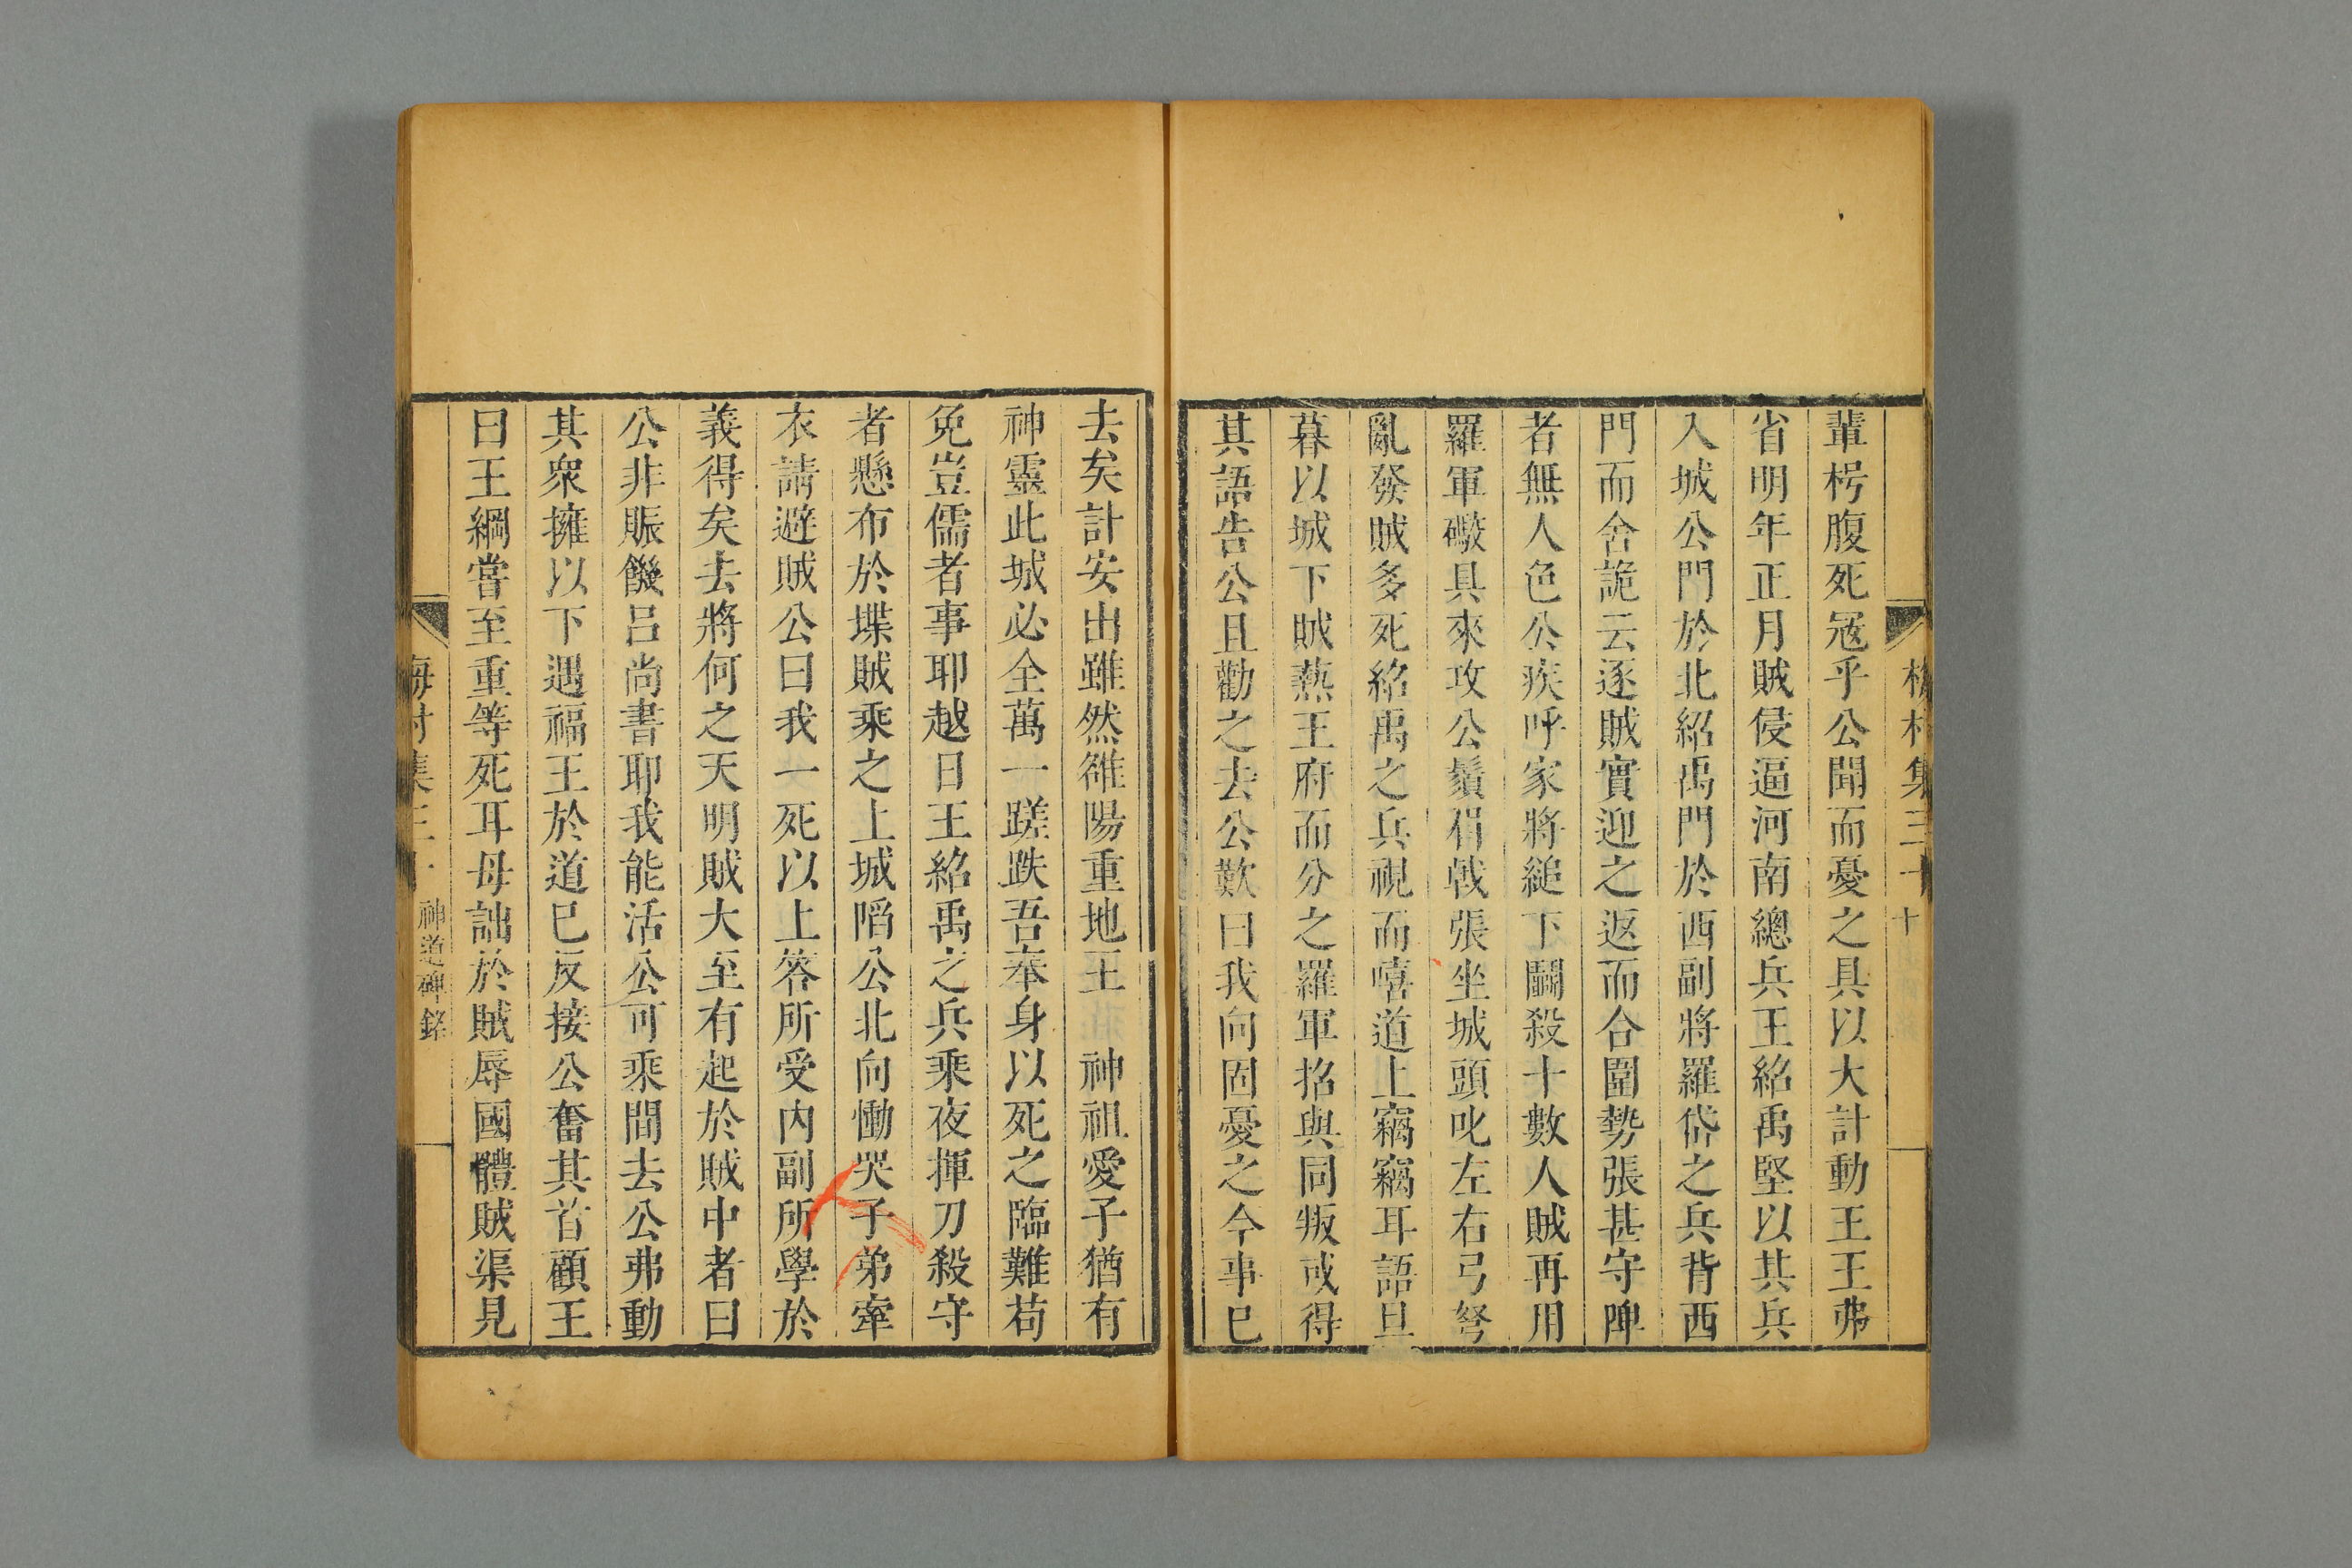 梅村集三十
十
輩枵腹死寇乎公聞而憂之具以大計動王王弗
省明年正月賊侵逼河南總兵王紹禹堅以其兵
入城公門於北紹禹門於西副將羅岱之兵背西
門而舍詭云逐賊實迎之返而合圍勢張甚守陴
者無人色公疾呼家將縋下鬬殺十數人賊再用
羅軍礮具來攻公鬚張坐城頭叱左右弓弩
亂發賊多死紹禹之兵視而嘻道上竊竊耳語旦
暮以城下賊爇王府而分之羅軍招與同叛或得
其語告公且勸之去公歎曰我向固憂之今事已
去矣計安出雖然雒陽重地王 神祖愛子猶有
神靈此城必全萬一蹉跌吾奉身以死之臨難苟
免豈儒者事耶越日王紹禹之兵乘夜揮刀殺守
者懸布於堞賊乘之上城䧟公北向慟哭子弟牽
衣請避賊公曰我一死以上答所受内副所學於
義得矣去將何之天明賊大至有起於賊中者曰
公非賑饑呂尚書耶我能活公可乘間去公弗動
其衆擁以下遇福王於道巳反接公奮其首顧王
曰王綱嘗至重等死耳毋詘於賊辱國體賊渠見
梅村集三十
神道碑銘